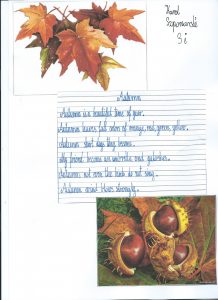 Karol
3i
Autumn
Autumn is a beautiful time of year.
Autumn leaves full color of orange, red, green, yellow.
Autumn start days they become
My friend become an umbrella and galoshes.
Autumn not even the birds do not sing.
Autumn wind blows strongly.